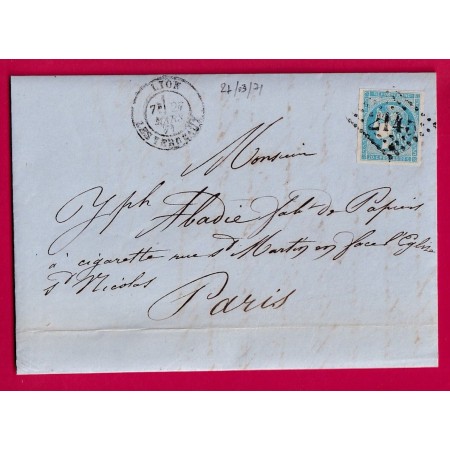 LYON
27/03/71
7E 27
MARS
71
LES TERREAUX
214
Monsieur
Jph Abadie fabt de Papiers
à cigarette rue St Martin en face l'Eglise
St Nicolas
Paris